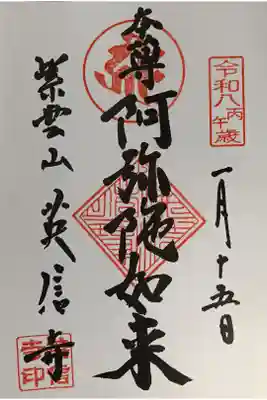 令和八丙午歳
一月十五日
本尊 阿弥陀如来
紫雲山 英信寺